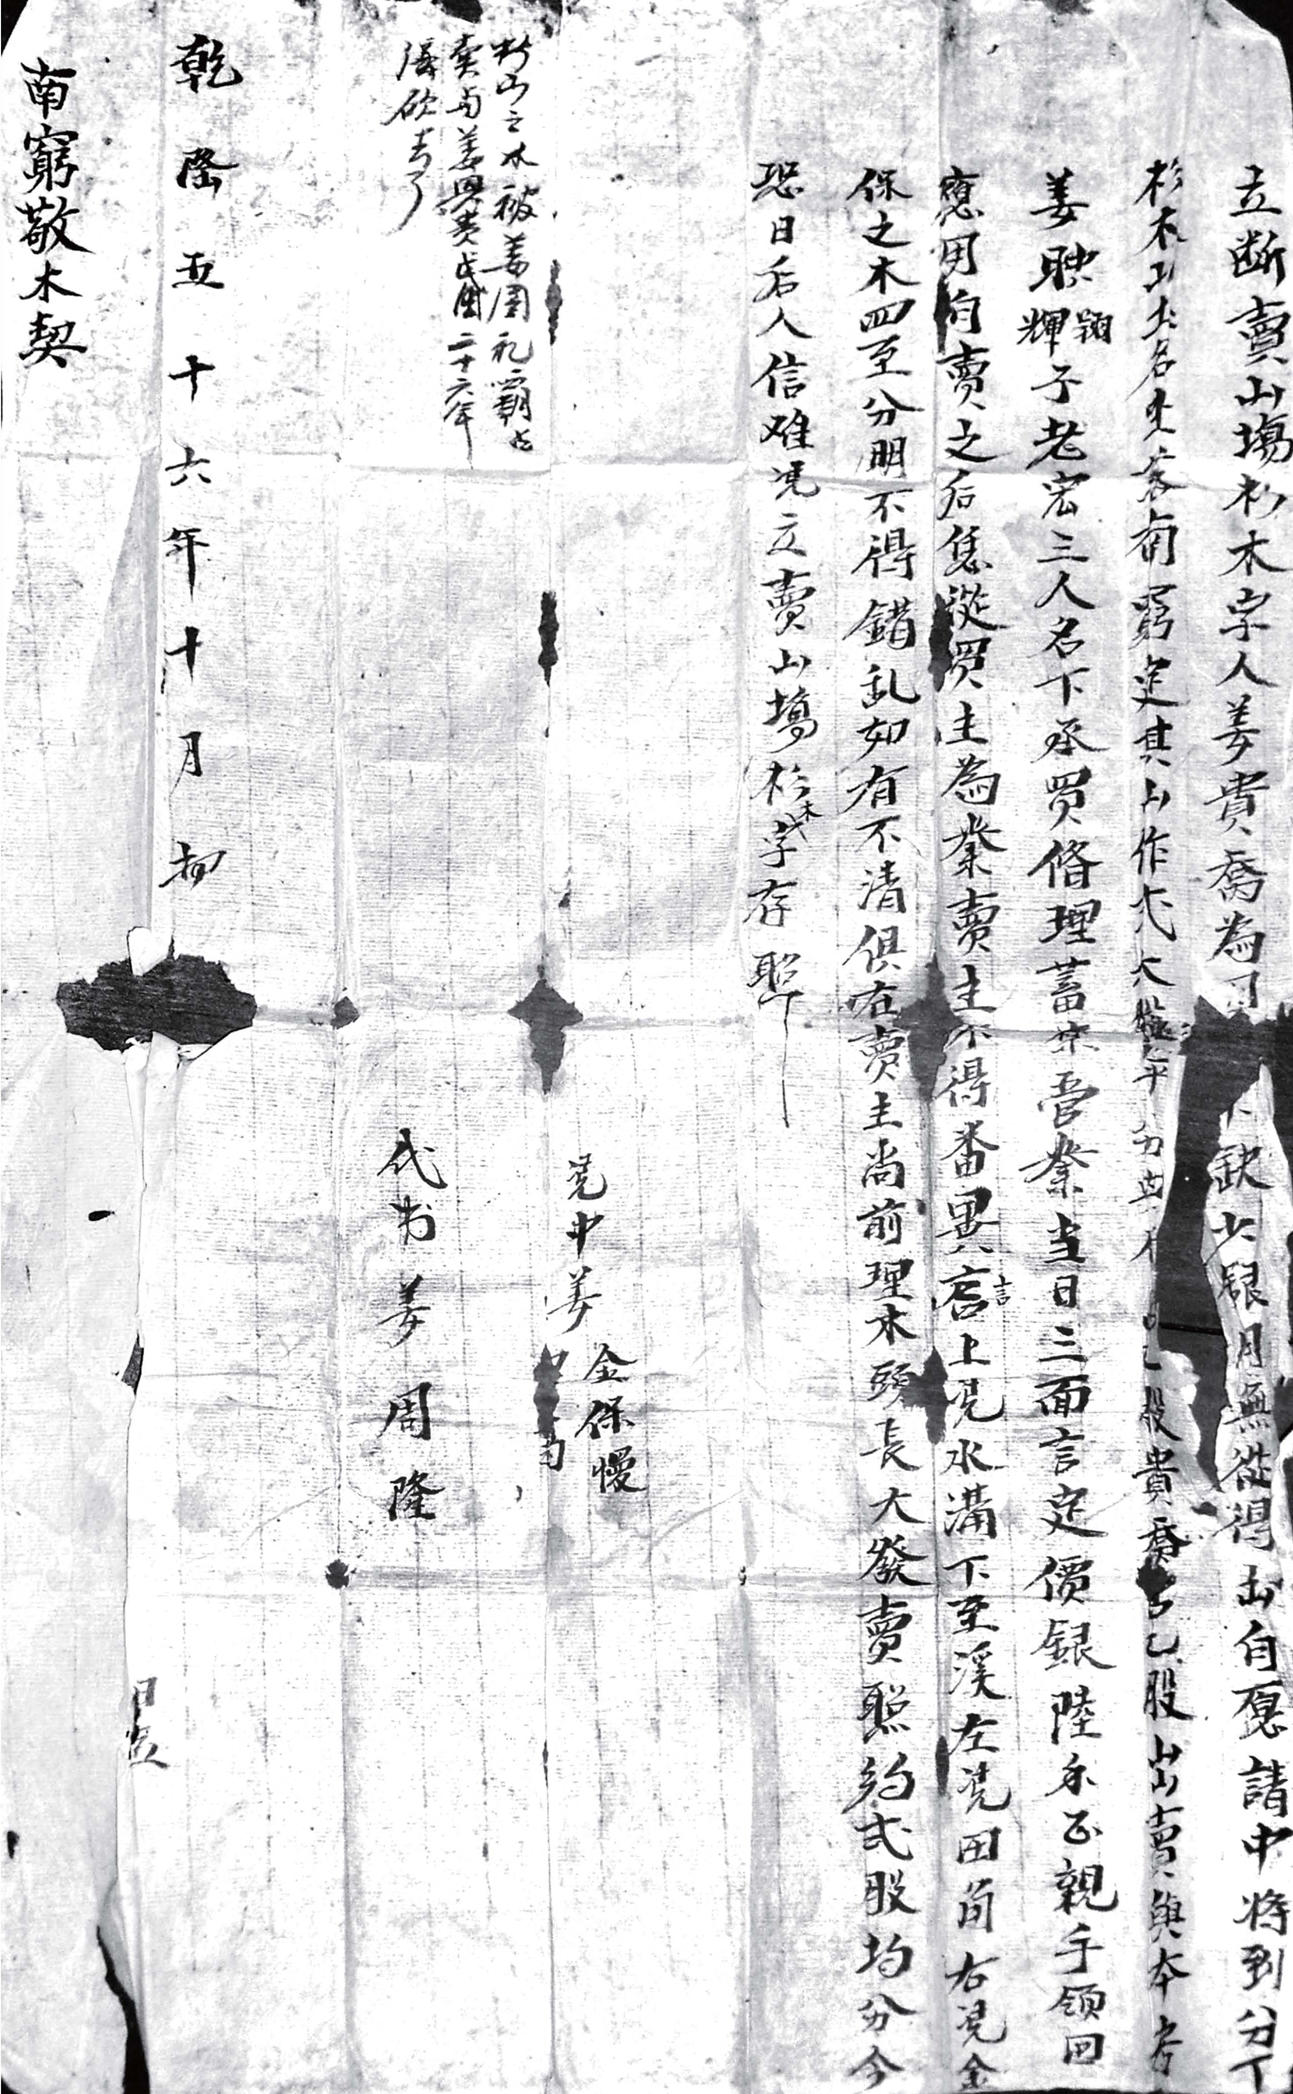 立断賣山場杉木字人姜貴喬為因缺少銀用無從得出自愿請中將到分下
杉木山土名坐落南窮定其山作弍大股平分占乙股貴喬占乙股出賣與本房
姜映翔輝子老宏三人名下承買修理蓄禁管業當日三面言定價銀陸錢正親手領回
應用自賣之后恁從買主為業賣主不得番異言上凭水溝下至溪左凭田角右凭金
保之木四至分明不得錯乱如有不清俱在賣主尚前理木頭長大發賣照約弍股均分今
恐日后人信难凭立賣山塲杉木弍字存照
凭中姜 金保慢
代书姜周隆
杉山之木被姜周礼覇占
卖与姜興貴成風二十六年
議砍去了
乾隆五十六年十月初 日立
南窮敬木契